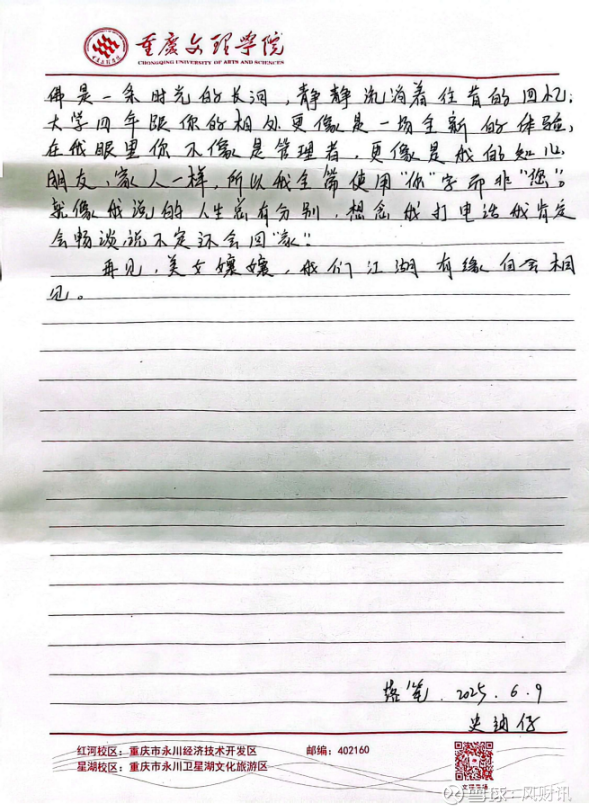 重庆文理学院
CHONGQING UNIVERSITY OF ARTS AND SCIENCES
佛是一条时光的长河，静静流淌着往昔的回忆；
大学四年跟你的相处更像是一场全新的体验，
在我眼里你不像是管理者，更像是我的知心
朋友、家人一样，所以我全篇使用“你”字而非“您”。
就像我说的人生总有分别，想念我打电话我肯定
会畅谈，说不定还会回“家”。
再见，美女嬢嬢，我们江湖有缘自会相
见。
落笔 2025.6.9
史纳仔
红河校区：重庆市永川经济技术开发区 邮编：402160
星湖校区：重庆市永川卫星湖文化旅游区
雪球：风财讯